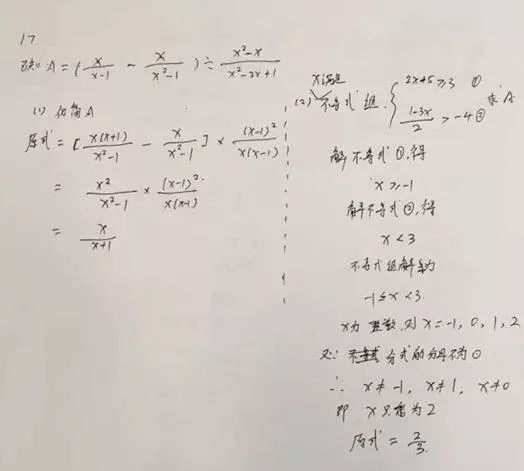 17
已知 A = (x/(x-1) - x/(x²-1)) ÷ (x²-x)/(x²-2x+1)
(1) 化简 A
原式 = [x(x+1)/(x²-1) - x/(x²-1)] × (x-1)²/(x(x-1))
= x²/(x²-1) × (x-1)²/(x(x-1))
= x/(x+1)
(2) x满足不等式组 { 2x+5≥3 ① (1-3x)/2 > -4 ② 求A
解不等式①,得
x≥-1
解不等式②,得
x<3
不等式组解集为
-1≤x<3
x为整数,则 x=-1, 0, 1, 2
又∵ 分式的分母不为0
∴ x≠-1, x≠1, x≠0
即 x只能为2
原式 = 2/3.